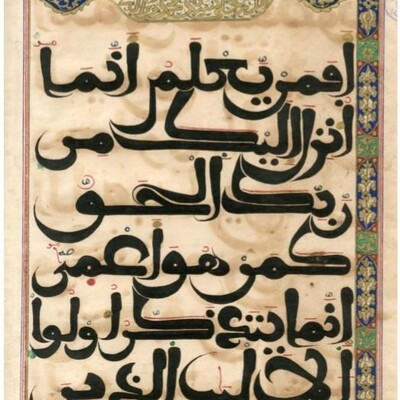 افمن يعلم انما
انزل اليك من
ربك الحق
كمن هو اعمى
انما يتذكر اولوا
الالباب الذين